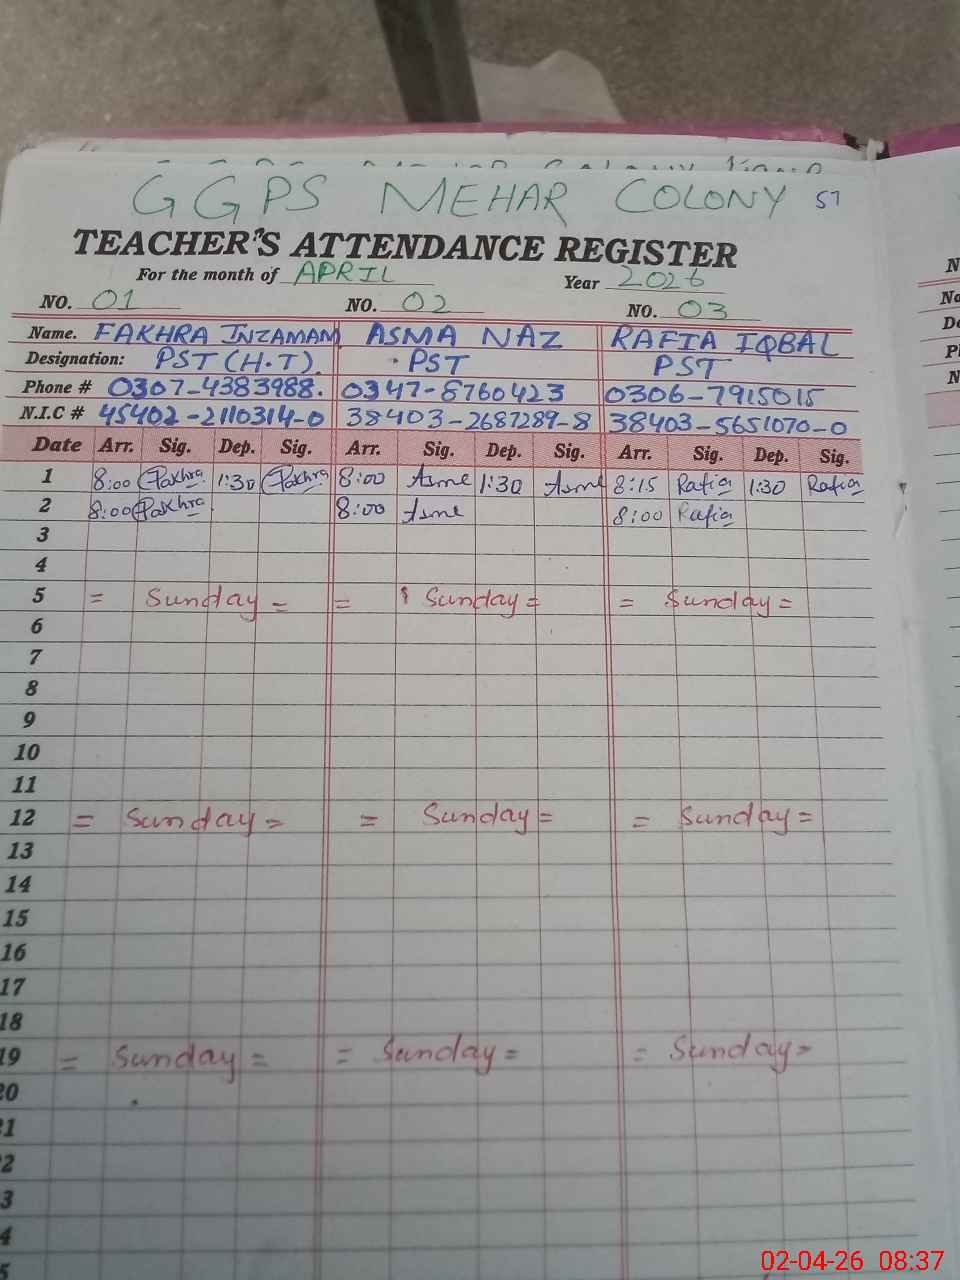 GGPS MEHAR COLONY 57
TEACHER'S ATTENDANCE REGISTER
For the month of APRIL Year 2026
NO. 01 NO. 02 NO. 03
Name. FAKHRA INZAMAM ASMA NAZ RAFIA IQBAL
Designation: PST (H.T). PST PST
Phone # 0307-4383988. 0347-8760423 0306-7915015
N.I.C # 45402-2110314-0 38403-2687289-8 38403-5651070-0
Date Arr. Sig. Dep. Sig. Arr. Sig. Dep. Sig. Arr. Sig. Dep. Sig.
1 8:00 Fakhra 1:30 Fakhra 8:00 Asma 1:30 Asma 8:15 Rafia 1:30 Rafia
2 8:00 Fakhra 8:00 Asma 8:00 Rafia
3
4
5 = Sunday = = Sunday = = Sunday =
6
7
8
9
10
11
12 = Sunday = = Sunday = = Sunday =
13
14
15
16
17
18
19 = Sunday = = Sunday = = Sunday =
20
1
2
3
4
5
02-04-26 08:37